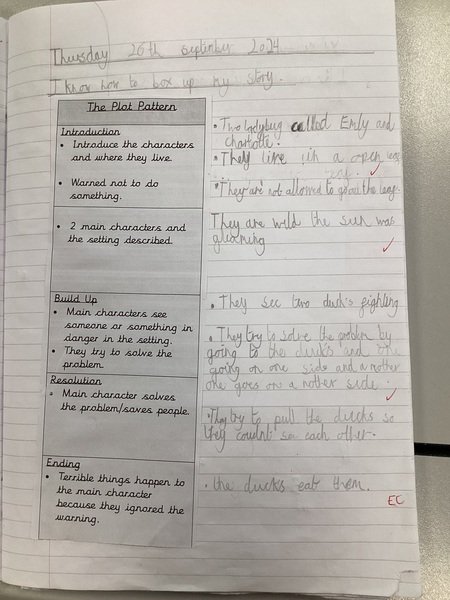 Thursday 26th september 2024
I know how to box up my story.
The Plot Pattern
Introduction
• Introduce the characters
and where they live.
• Warned not to do
something.
• Two ladybug called Emly and
charlotte.
• They live in a open leaf
• They are not allowed to the leaf.
• 2 main characters and
the setting described.
They are wild the sun was
Build Up
• Main characters see
someone or something in
danger in the setting.
• They try to solve the
problem.
• They see two duck's fighting
• They try to solve the problem by
going to the ducks and one
going on one side and a nother
one goes on a nother side.
Resolution
• Main character solves
the problem/saves people.
try to pull the ducks so
they couldnt see each other.
Ending
• Terrible things happen to
the main character
because they ignored the
warning.
• the ducks eat them.
EC